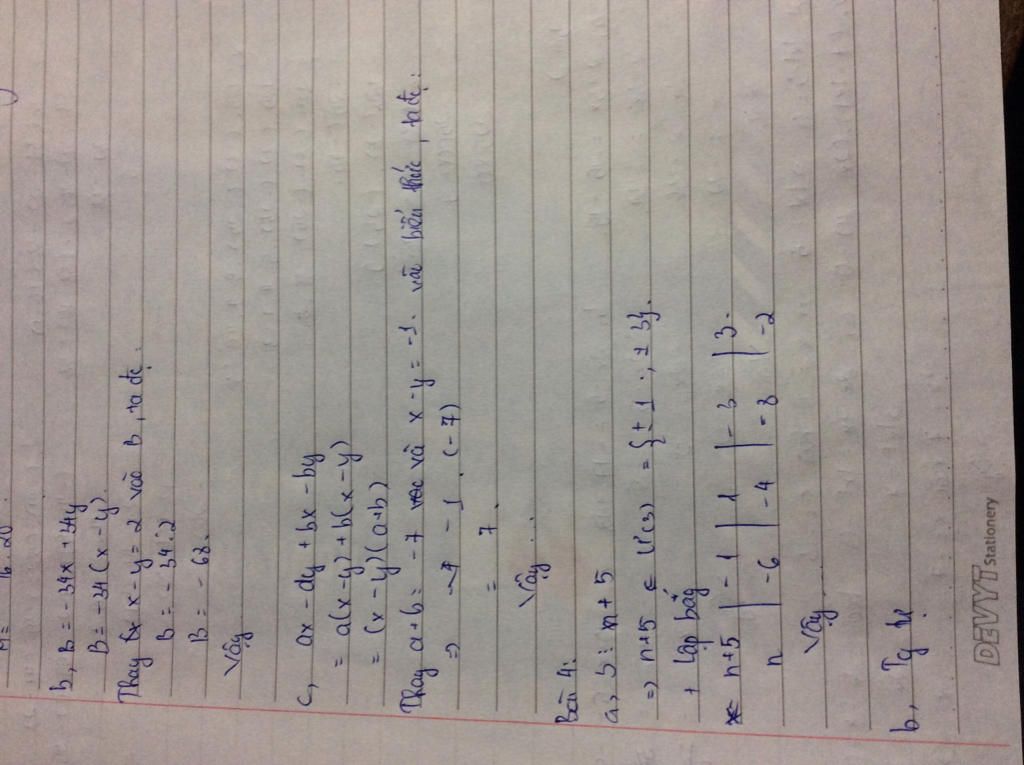 M = 16.20
b, B = -34x + 34y
B = -34(x - y)
Thay x - y = 2 vào B, ta đc:
B = -34.2
B = -68.
Vậy
c, ax - ay + bx - by
= a(x - y) + b(x - y)
= (x - y)(a + b)
Thay a + b = -7 và x - y = -1. vào biểu thức, ta đc:
=> -1.(-7)
= 7.
Vậy...
Bài 4:
a, 3 ⋮ n + 5
=> n+5 ∈ Ư(3) = {± 1; ± 3}.
+ Lập bảg
n+5 | -1 | 1 | -3 | 3.
n | -6 | -4 | -8 | -2
Vậy
b, Tg tự
DEVYT Stationery